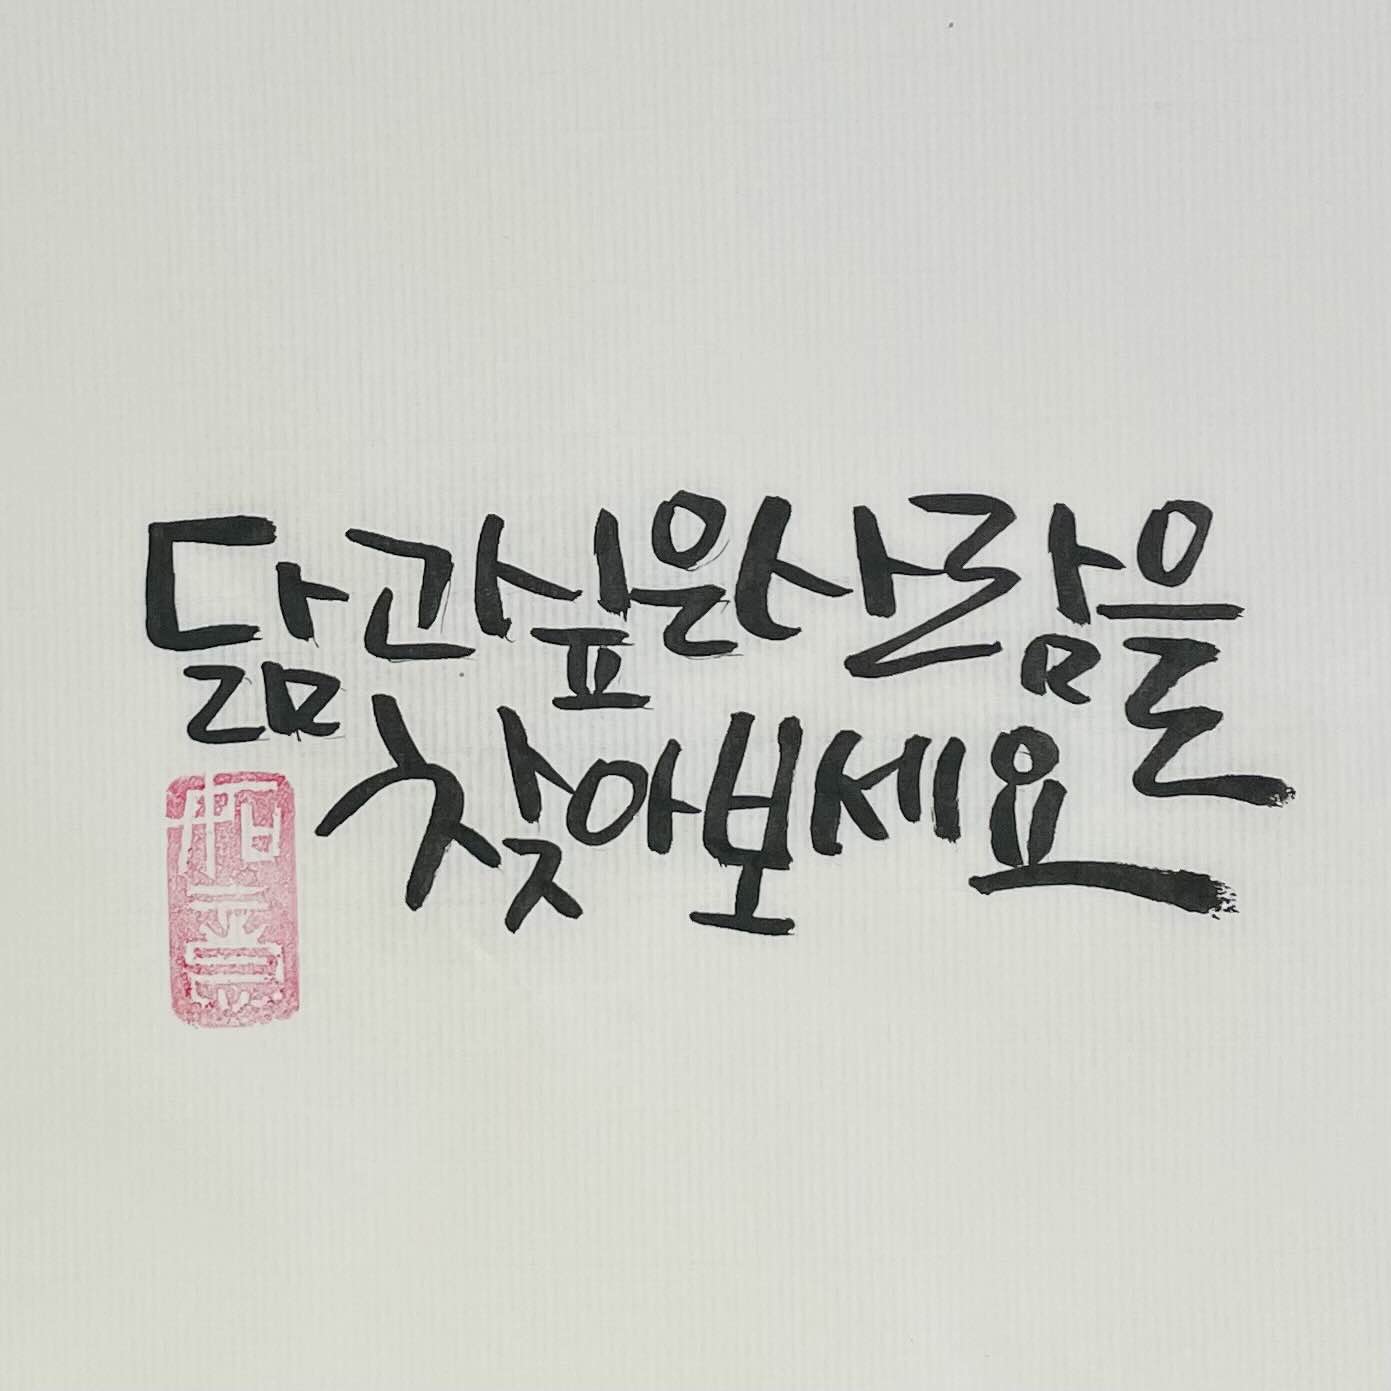 닮고싶은사람을
찾아보세요